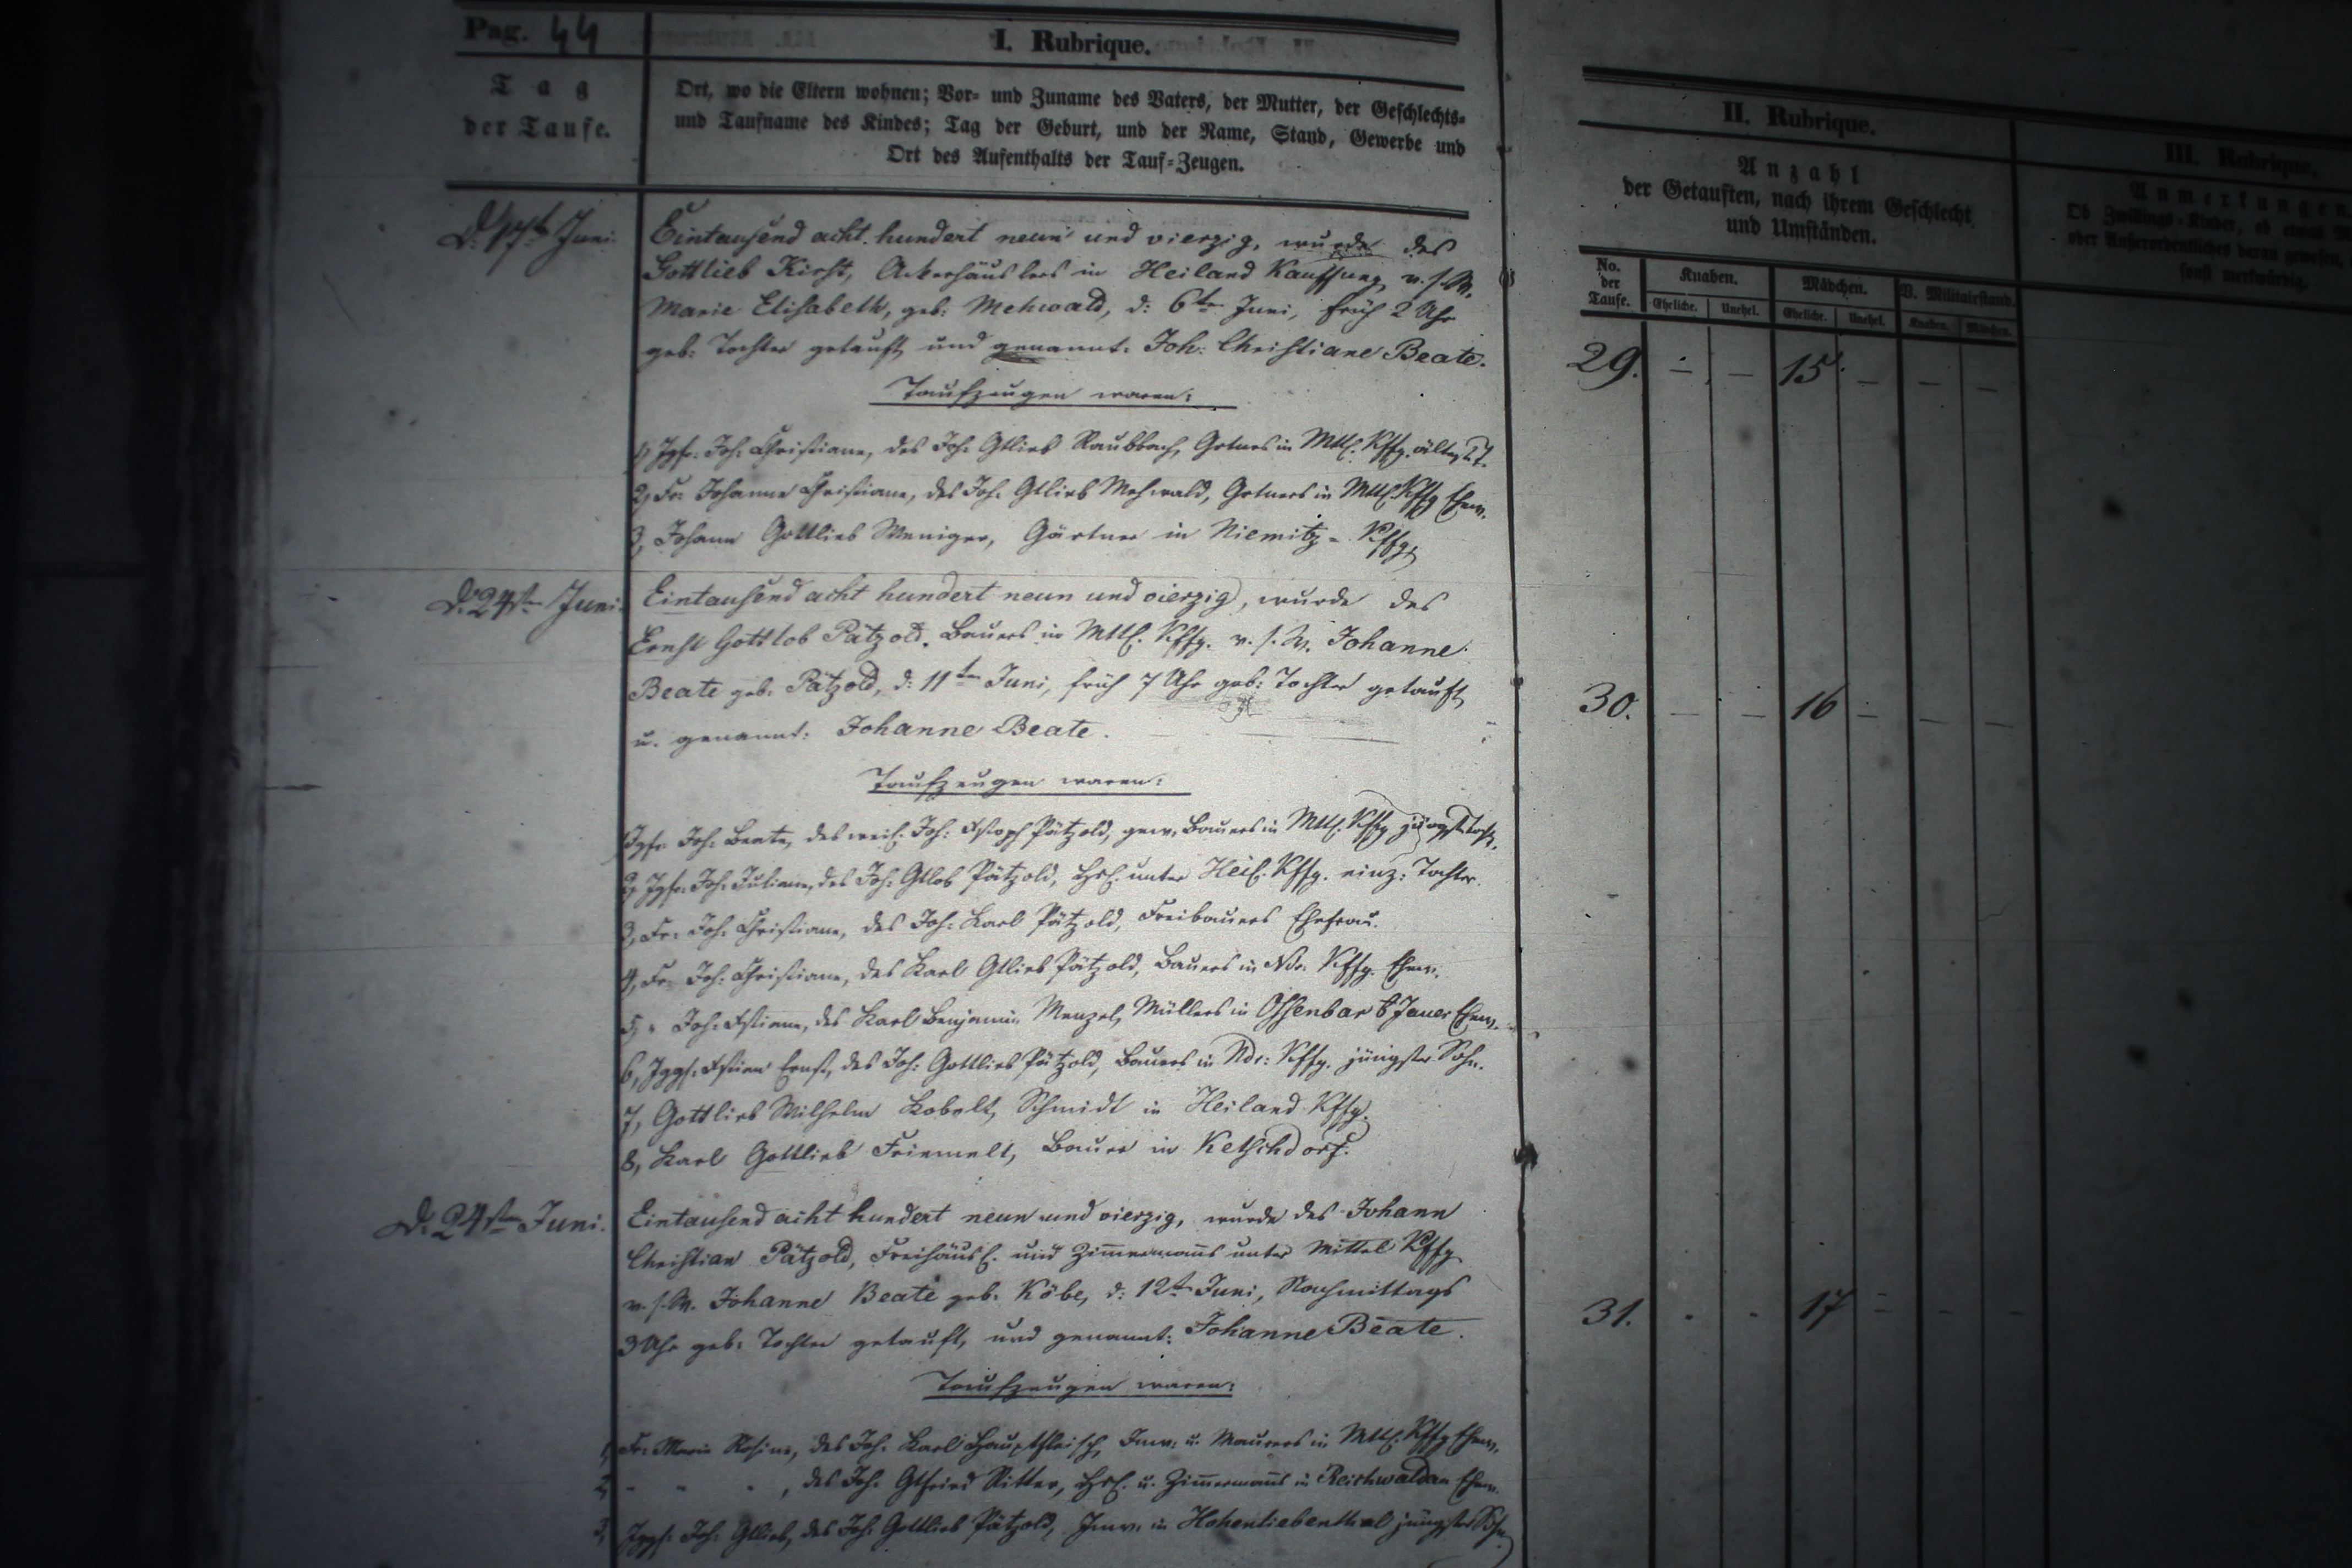 Pag. 44
I. Rubrique.
Tag
der Taufe.
Ort, wo die Eltern wohnen; Vor- und Zuname des Vaters, der Mutter, der Geschlechts-
und Taufname des Kindes; Tag der Geburt, und der Name, Stand, Gewerbe und
Ort des Aufenthalts der Tauf-Zeugen.
II. Rubrique.
Anzahl
der Getauften, nach ihrem Geschlecht
und Umständen.
No.
der
Taufe.
Knaben.
Mädchen.
V. Militairstand.
Eheliche.
Unehel.
Eheliche.
Unehel.
Knaben.
Mädchen.
III. Rubrique.
Anmerkungen
Ob Zwillings-Kinder, ob etwas
oder Außerordentliches daran gewesen,
sonst merkwürdig.
D. 17t Juni.
Eintausend acht hundert neun und vierzig, wurde des
Gottlieb Kirst, Ackerhäuslers in Heiland Kauffung, v. s. W.
Marie Elisabeth, geb: Mehwald, d: 6ten Juni, früh 2 Uhr
geb: Tochter getauft und genannt: Joh: Christiane Beate.
29. - - 15. - - -
Taufzeugen waren:
1, Jgfr. Joh: Christiane, des Joh: Gtlieb Raubbach, Grtners in Mttl. Kffg. ältest. T.
2, Fr. Johanne Christiane, des Joh: Gtlieb Mehwald, Grtners in Mttl. Kffg Ehew.
3, Johann Gottlieb Weniger, Gärtner in Niemitz-Kffg.
D. 24st Juni.
Eintausend acht hundert neun und vierzig, wurde des
Ernst Gottlob Pätzold, Bauers in Mttl. Kffg. v. s. W. Johanne
Beate geb: Pätzold, d: 11ten Juni, früh 7 Uhr geb: Tochter getauft
u. genannt: Johanne Beate.
30. - - 16 - - -
Taufzeugen waren:
1, Jgfr. Joh: Beate, des weil. Joh: Chstoph Pätzold, gew. Bauers in Mttl. Kffg jüngste Tocht.
2, Jgfr. Joh: Juliane, des Joh: Gtlob Pätzold, Hsl. unter Heil. Kffg. einz: Tochter.
3, Fr. Joh: Christiane, des Joh: Karl Pätzold, Freibauers Ehefrau.
4, Fr. Joh: Christiane, des Karl Gtlieb Pätzold, Bauers in Ndr. Kffg. Ehew.
5, " Joh: Chstiane, des Karl Benjamin Menzel, Müllers in Ossenbar b Jauer Ehew.
6, Jggs. Chstian Ernst, des Joh: Gottlieb Pätzold, Bauers in Ndr: Kffg. jüngster Sohn.
7, Gottlieb Wilhelm Kobelt, Schmidt in Heiland Kffg.
8, Karl Gottlieb Friemelt, Bauer in Ketschdorf.
D. 24st Juni.
Eintausend acht hundert neun und vierzig, wurde des Johann
Christian Pätzold, Freihäusl. und Zim̄erman̄s unter Mittel Kffg
v. s. W. Johanne Beate geb. Köbe, d: 12t Juni, Nachmittags
3 Uhr geb: Tochter getauft, und genannt: Johanne Beate.
31. - - 17 - - -
Taufzeugen waren:
1, Fr. Marie Rosine, des Joh: Karl Hauptfleisch, Inw. u. Maurers in Mttl. Kffg Ehew.
2, " " " , des Joh: Gtfried Ritter, Hsl. u. Zim̄erman̄s in Reichwaldau Ehew.
3, Jggs. Joh: Gtlieb, des Joh: Gottlieb Pätzold, Inw. in Hohenliebenthal jüngster Sohn